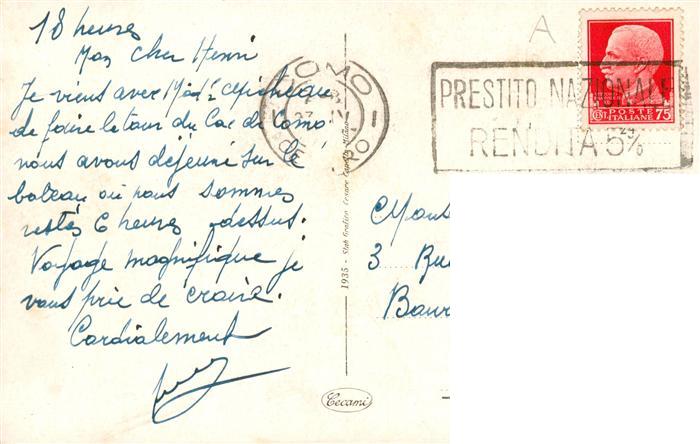 18 heures
Mon cher Henri
Je viens avec
de faire le tour du Lac de Como
nous avons dejeuné sur le
bateau où nous sommes
restés 6 heures dessus.
Voyage magnifique je
vous prie de croire.
Cordialement
COMO
PRESTITO NAZIONALE
RENDITA 5%
POSTE
ITALIANE
75
3 Rue
1935 - Stab. Grafico Cesare Capello - Milano
Cecami
A